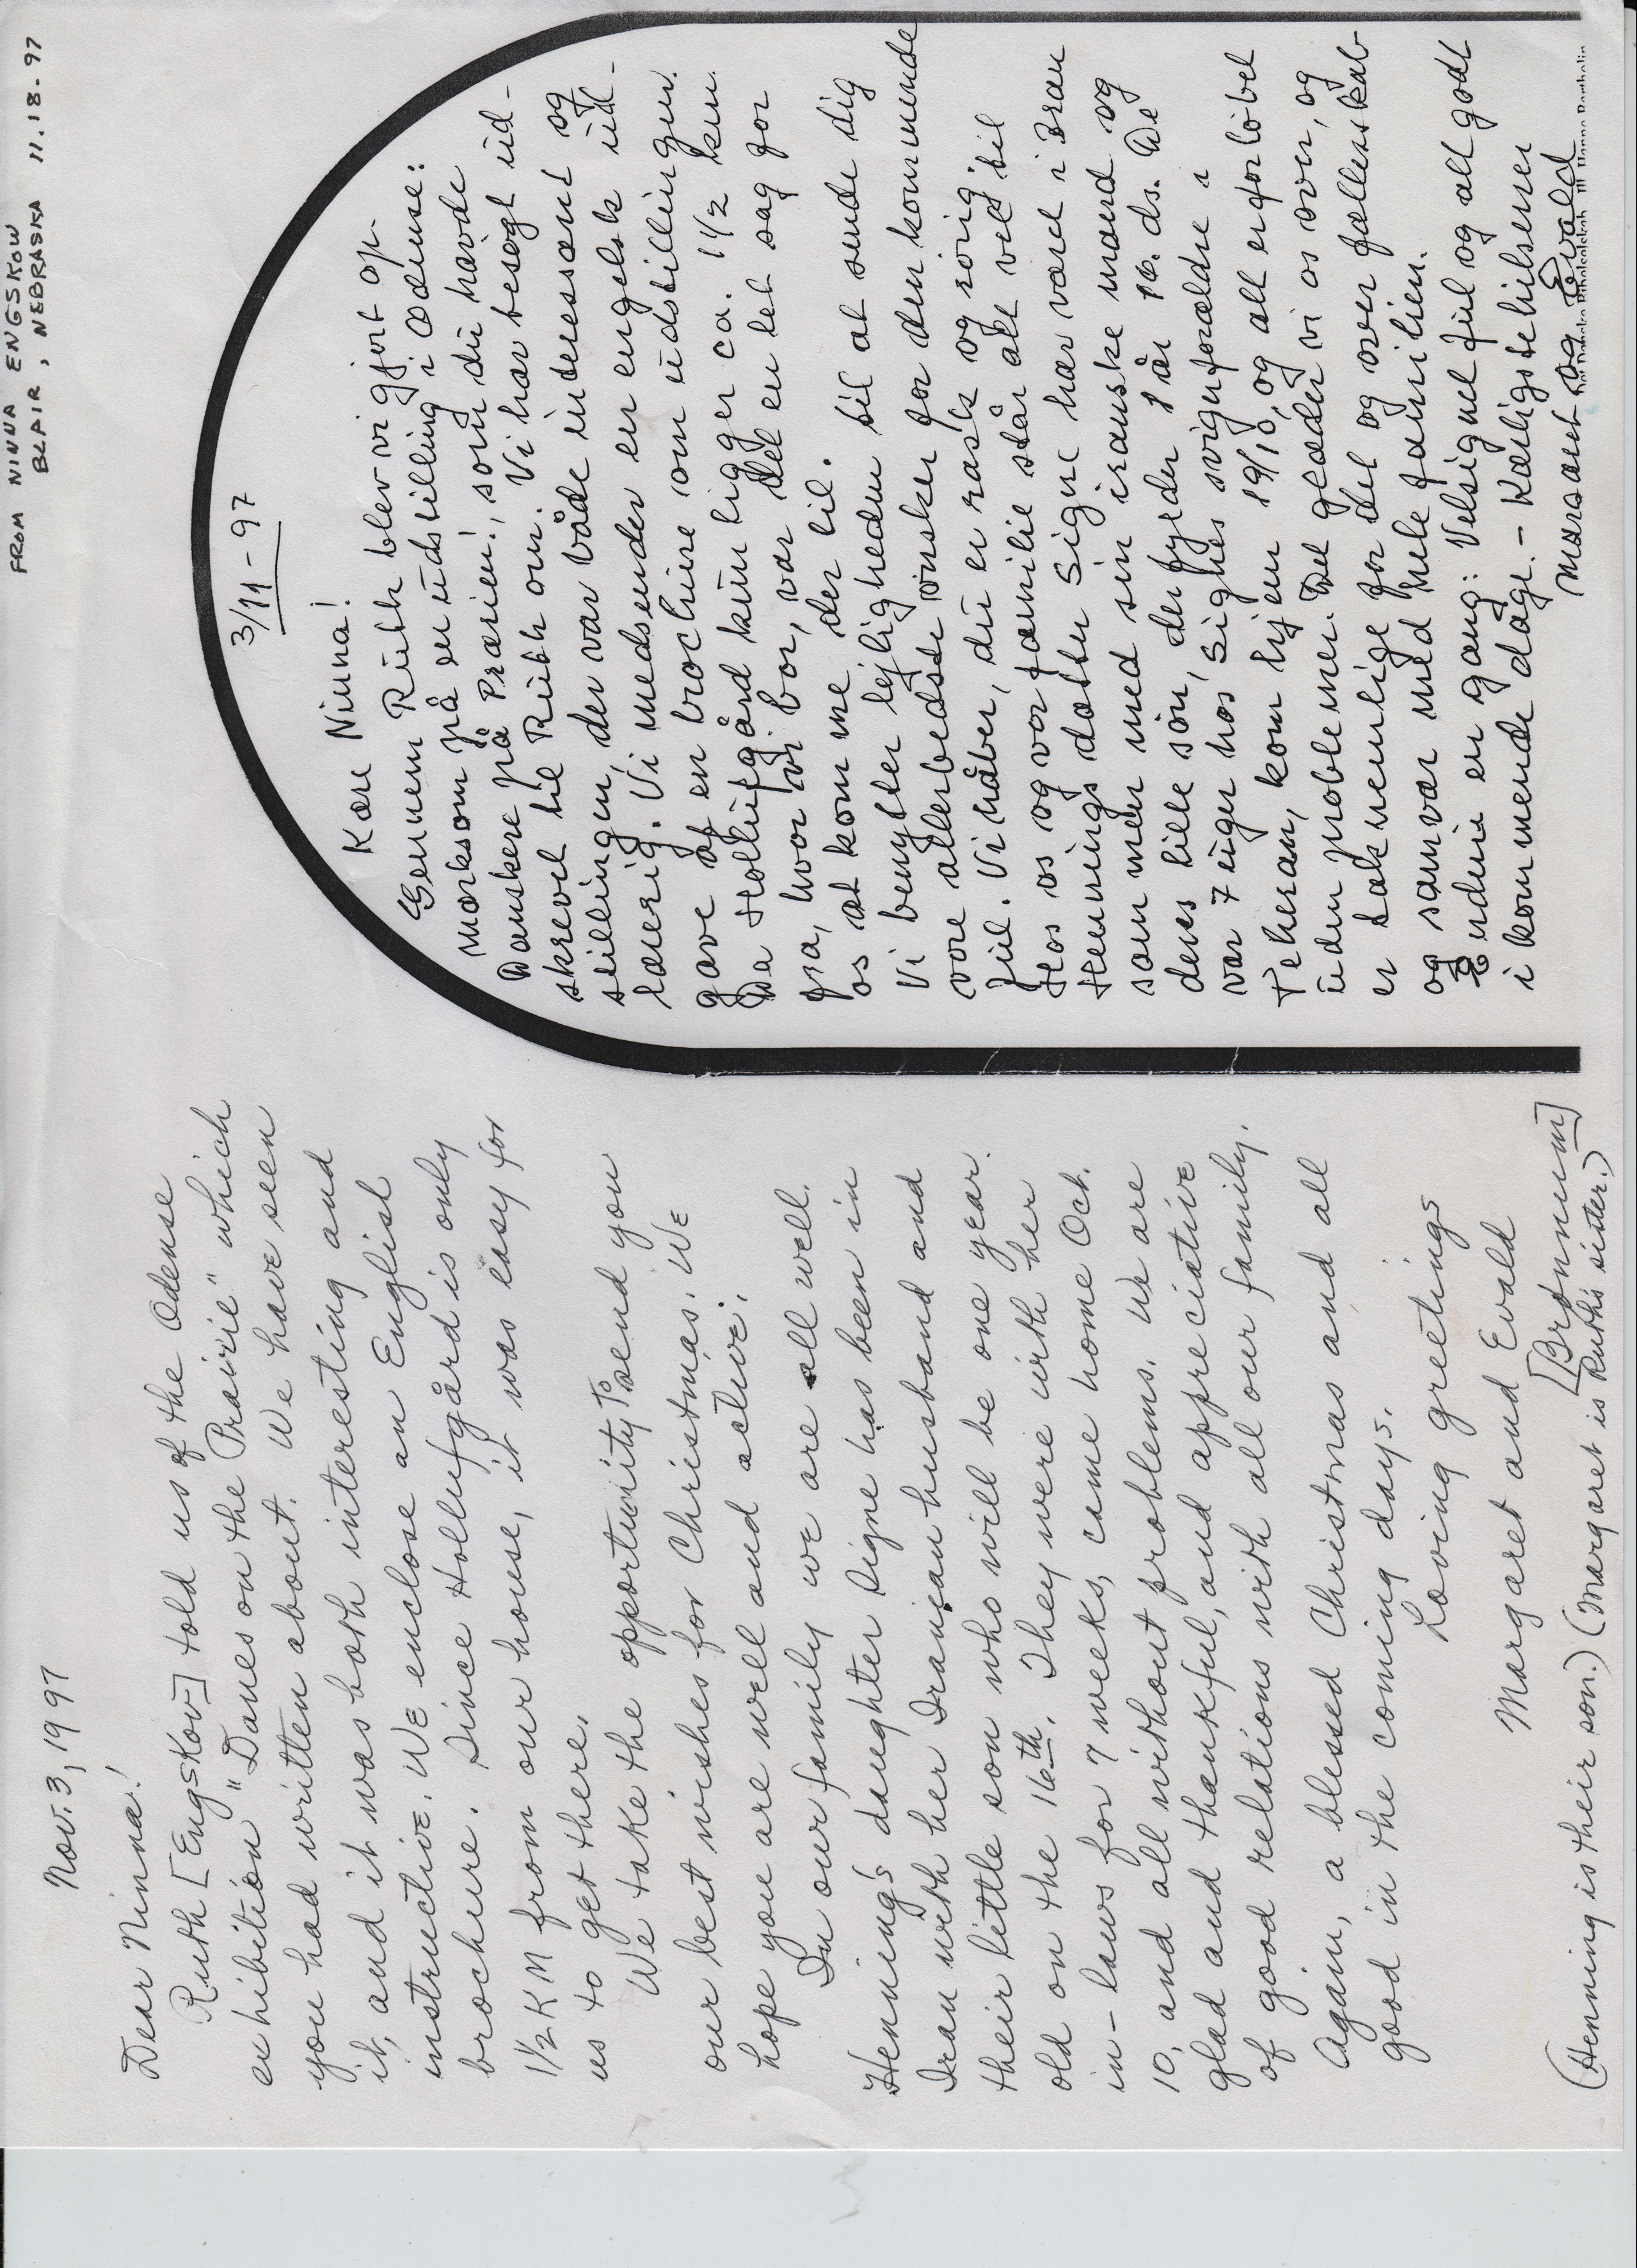 FROM NINNA ENGSKOW
BLAIR, NEBRASKA 11.18.97
Nov. 3, 1997
Dear Ninna!
Ruth [Engskov] told us of the Odense
exhibition "Danes on the Prairie" which
you had written about. We have seen
it, and it was both interesting and
instructive. We enclose an English
brochure. Since Hollufgård is only
1½ KM from our house, it was easy for
us to get there.
We take the opportunity to send you
our best wishes for Christmas. We
hope you are well and active.
In our family we are all well.
Henning's daughter Signe has been in
Iran with her Iranian husband and
their little son who will be one year
old on the 16th. They were with her
in-laws for 7 weeks, came home Oct.
10, and all without problems. We are
glad and thankful, and appreciative
of good relations with all our family.
Again, a blessed Christmas and all
good in the coming days.
Loving greetings
Margaret and Evald
[Brønnum]
(Henning is their son.) (Margaret is Ruth's sister.)
3/11-97
Kære Ninna!
Gennem Ruth blev vi gjort op-
mærksom på en udstilling i Odense:
Danskere på Prærien!, som du havde
skrevet til Ruth om. Vi har besøgt ud-
stillingen, der var både interessant og
lærerig. Vi medsender en engelsk ud-
gave af en brochure om udstillingen.
Da Hollufgård kun ligger ca. 1½ km
fra, hvor vi bor, var det en let sag for
os at komme der til.
Vi benytter lejligheden til at sende dig
vore allerbedste ønsker for den kommende
Jul. Vi håber, du er rask og rørig.
Hos os og vor familie står alt vel til
Hennings datter Signe har været i Iran
sammen med sin iranske mand og
deres lille søn, der fylder 1 år 16. ds. De
var 7 uger hos Signes svigerforældre i
Teheran, kom hjem 19/10, og alt er forløbet
uden problemer. Det glæder vi os over, og
er taknemlige for det og over fællesskab
og samvær med hele familien.
Endnu en gang: Velsignet Jul og alt godt
i kommende dage. – Kærligste hilsener
Margaret og Evald